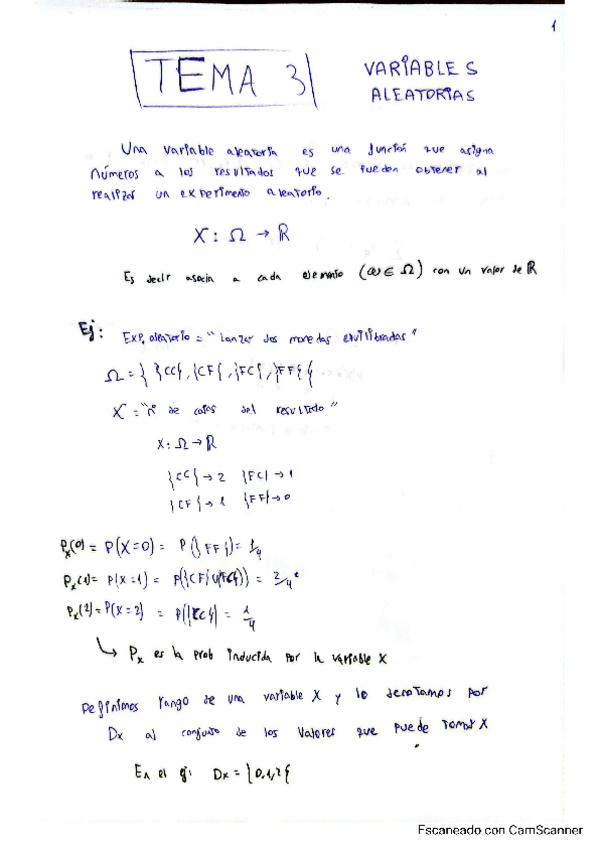 1
TEMA 3
VARIABLES
ALEATORIAS
Una variable aleatoria es una función que asigna
números a los resultados que se pueden obtener al
realizar un experimento aleatorio.
X: Ω → ℝ
Es decir asocia a cada elemento (ω ∈ Ω) con un valor de ℝ
Ej: Exp. aleatorio = "lanzar dos monedas equilibradas"
Ω = { {CC}, {CF}, {FC}, {FF} }
X = "nº de caras del resultado"
X: Ω → ℝ
{CC} → 2 {FC} → 1
{CF} → 1 {FF} → 0
Px(0) = P(X=0) = P({FF}) = 1/4
Px(1) = P(X=1) = P({CF}∪{FC}) = 2/4
Px(2) = P(X=2) = P({CC}) = 1/4
↳ Px es la prob inducida por la variable X
Definimos rango de una variable X y lo denotamos por
Dx al conjunto de los valores que puede tomar X
En el ej: Dx = {0,1,2}
Escaneado con CamScanner